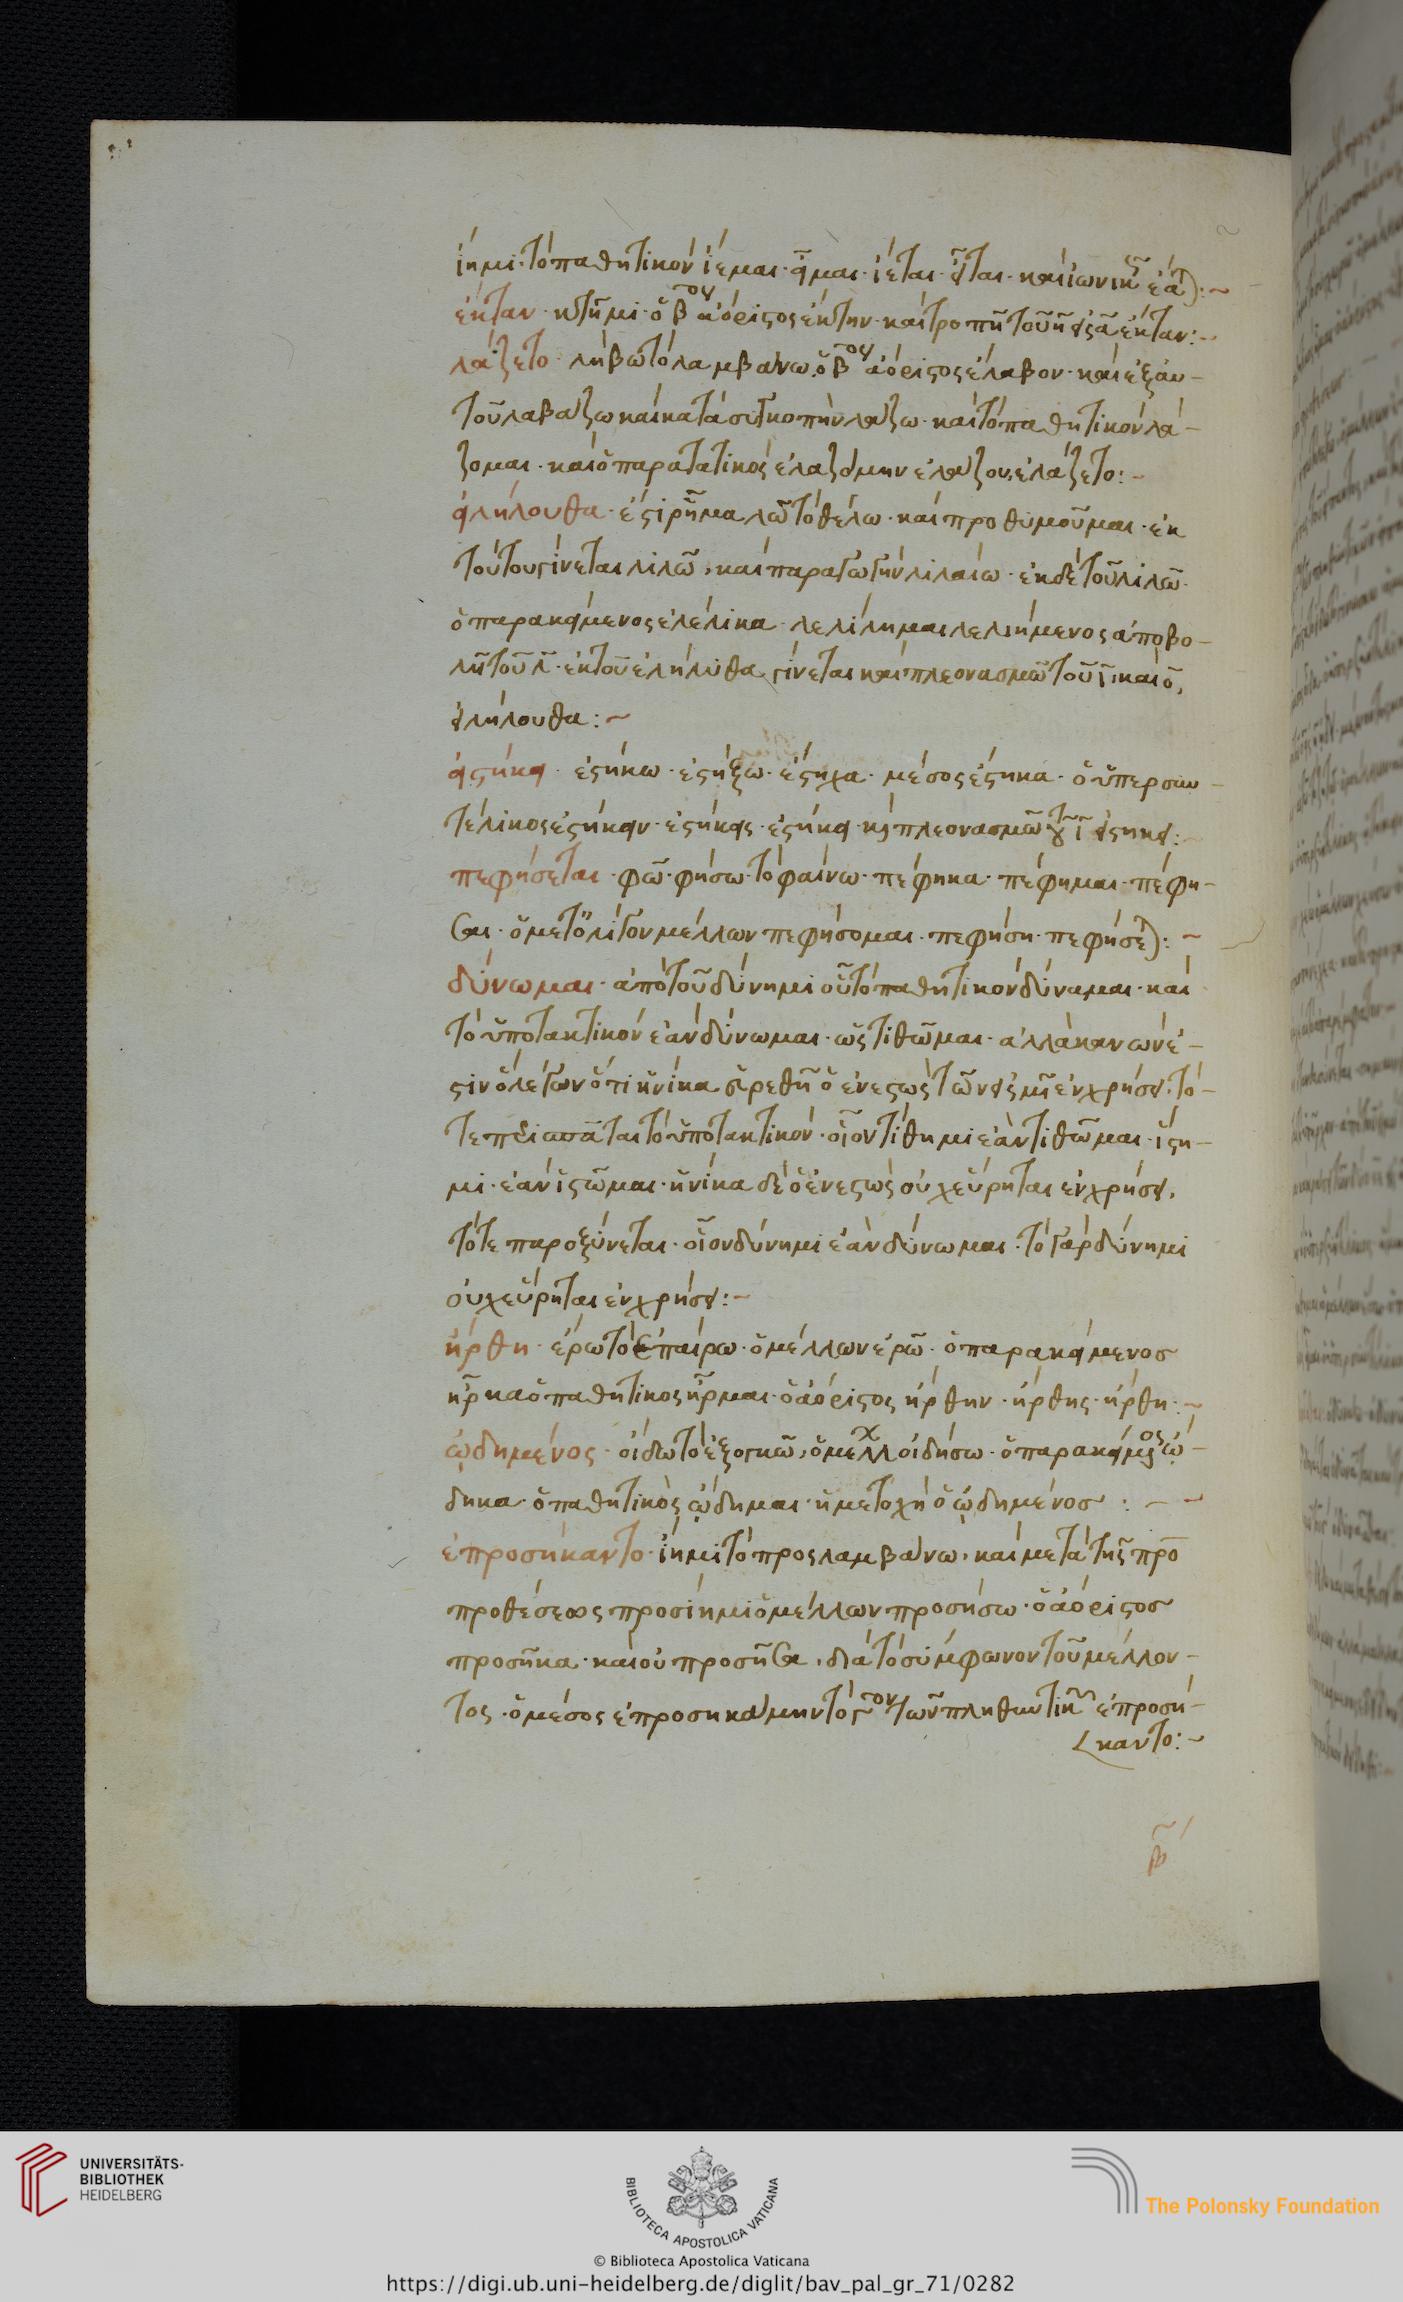 ἵημι· τὸ παθητικὸν ἵεμαι· εἷμαι· ἵεται· εἷται· καὶ ἰωνικῶς ἕαται:~
ἔκταν· κτῆμι· ὁ β̅ου ἀόριστος ἔκτην· καὶ τροπῇ τοῦ η εἰς α ἔκταν:~
λάζετο· λήβω τὸ λαμβάνω. ὁ β̅ου ἀόριστος ἔλαβον· καὶ ἐξ αυ-
τοῦ λαβάζω καὶ κατὰ συγκοπὴν λάζω· καὶ τὸ παθητικὸν λά-
ζομαι· καὶ ὁ παρατατικὸς ἐλαζόμην ἐλάζου, ἐλάζετο:~
εἰλήλουθα· ἐστὶ ῥῆμα λῶ τὸ θέλω· καὶ προθυμοῦμαι· ἐκ
τούτου γίνεται λιλῶ, καὶ παραγωγὴν λιλαίω· ἐκ δὲ τοῦ λιλῶ
ὁ παρακείμενος ἐλέλικα λελίλημαι λελιημένος ἀποβο-
λῇ τοῦ λ· ἐκ τοῦ ἐλήλυθα γίνεται καὶ πλεονασμῷ τοῦ ι, καὶ ο,
εἰλήλουθα:~
εἱστήκει· ἑστήκω· ἑστήξω· ἕστηχα· μέσος ἕστηκα· ὁ ὑπερσυν-
τέλικος ἑστήκειν· ἑστήκεις· ἑστήκει· καὶ πλεονασμῷ τοῦ ι εἱστήκει:
πεφήσεται· φῶ· φήσω· τὸ φαίνω· πέφηκα· πέφημαι· πέφη-
σαι· ὁ μετ' ὀλίγον μέλλων πεφήσομαι· πεφήση· πεφήσεται:~
δύνωμαι· ἀπὸ τοῦ δύνημι οὗ τὸ παθητικὸν δύναμαι· καὶ
τὸ ὑποτακτικὸν ἐὰν δύνωμαι· ὡς τιθῶμαι· ἀλλὰ κανών ἐ-
στιν ὁ λέγων ὅτι ἡνίκα εὑρεθῇ ὁ ἐνεστὼς τῶν εἰς μι ἐν χρήσει· τό-
τε περισπᾶται τὸ ὑποτακτικόν· οἷον τίθημι ἐὰν τιθῶμαι· ἵστη-
μι· ἐὰν ἱστῶμαι· ἡνίκα δὲ ὁ ἐνεστὼς οὐχ εὕρηται ἐν χρήσει,
τότε παροξύνεται· οἷον δύνημι ἐὰν δύνωμαι· τὸ γὰρ δύνημι
οὐχ εὕρηται ἐν χρήσει:~
ἤρθη· ἔρω τὸ ἐπαίρω· ὁ μέλλων ἐρῶ· ὁ παρακείμενος
ἦρκα ὁ παθητικος ἦρμαι· ὁ ἀόριστος ἤρθην· ἤρθης· ἤρθη:~
ᾠδημένος· οἰδῶ τὸ ἐξογκῶ, ὁ μέλλων οἰδήσω· ὁ παρακείμενος ᾤ-
δηκα· ὁ παθητικὸς ᾤδημαι· ἡ μετοχὴ ὁ ᾠδημένος: ~
ἐπροσήκαντο· ἵημι τὸ προσλαμβάνω, καὶ μετὰ τῆς προ
προθέσεως προσίημι ὁ μέλλων προσήσω· ὁ ἀόριστος
προσῆκα· καὶ οὐ προσῆσα, διὰ τὸ σύμφωνον τοῦ μέλλον-
τος· ὁ μέσος ἐπροσηκάμην τὸ γ̅ον τῶν πληθυντικῶν ἐπροσή-
καντο:~
β
UNIVERSITÄTS-
BIBLIOTHEK
HEIDELBERG
BIBLIOTECA APOSTOLICA VATICANA
The Polonsky Foundation
© Biblioteca Apostolica Vaticana
https://digi.ub.uni-heidelberg.de/diglit/bav_pal_gr_71/0282